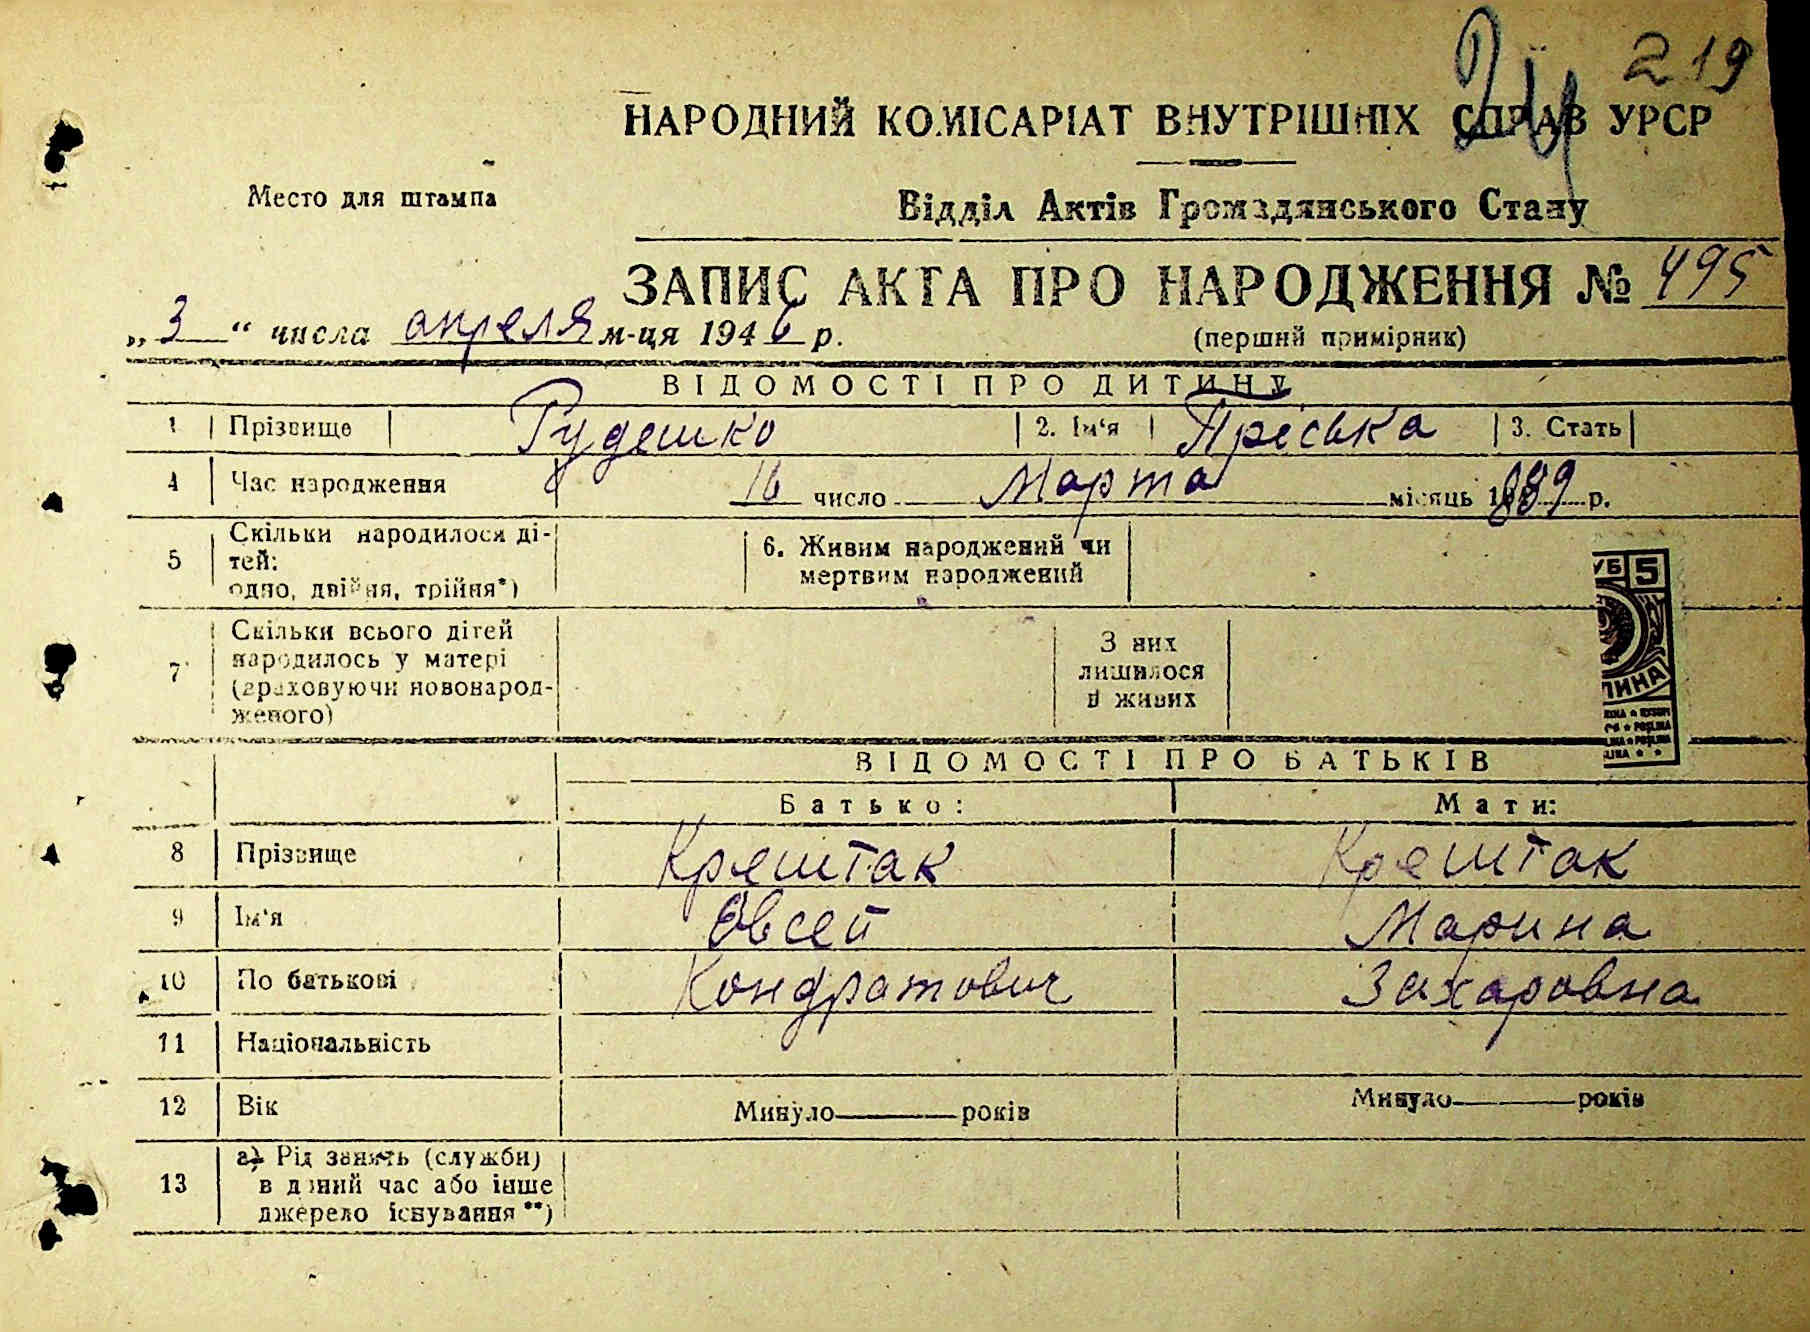 219
24
НАРОДНИЙ КОМІСАРІАТ ВНУТРІШНІХ СПРАВ УРСР
Место для штампа
Відділ Актів Громадянського Стану
ЗАПИС АКТА ПРО НАРОДЖЕННЯ № 495
„3“ числа апреля м-ця 1946 р.
(перший примірник)
ВІДОМОСТІ ПРО ДИТИНУ
1 Прізвище Рудешко 2. Ім‘я Пріська 3. Стать
4 Час народження 16 число Марта місяць 1889 р.
5 Скільки народилося ді-
тей:
одно, двійня, трійня*)
6. Живим народжений чи
мертвим народжений
УБ 5
7 Скільки всього дітей
народилось у матері
(враховуючи новонарод-
женого)
З них
лишилося
в живих
ЛИНА
ВІДОМОСТІ ПРО БАТЬКІВ
Батько: Мати:
8 Прізвище Крештак Крештак
9 Ім‘я Овсей Марина
10 По батькові Кондратович Захаровна
11 Національність
12 Вік Минуло років Минуло років
13 а) Рід занять (служби)
в даний час або інше
джерело існування**)